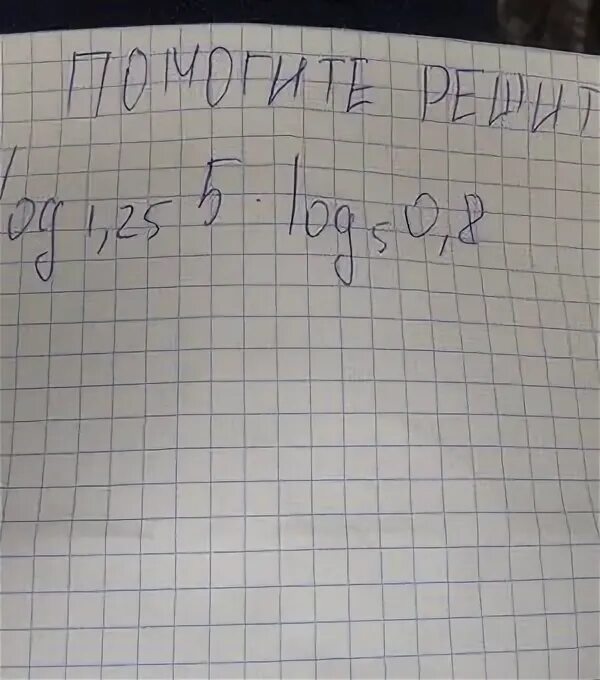 ПОМОГИТЕ РЕШИТ
log₁,₂₅ 5 · log₅ 0,8